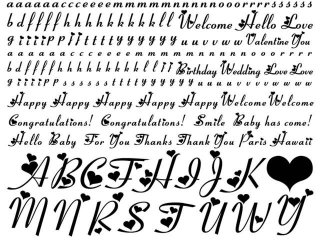 a a a a a a c c c c e e e e m m m m m n n n n n o o o r r r r s s s s s
b d f f f f h h h h h k k k k k l l Welcome Hello Love
g i i i i p p j j t t t t y y y y y u u v v u w Valentine You
a a a a a a c c c c e e e e m m m m m n n n n n o o o r r r r s s s s s
b d f f f f h h h h h k k k k l l Birthday Wedding Love Love
g i i i i p p j j t t t t y y y y y u u v v u w
Happy Happy Happy Happy Happy Welcome Welcome
Congratulations! Congratulations! Smile Baby has come!
Hello Baby For You Thanks Thank You Paris Hawaii
A B C F H I J K
M N R S T U W Y